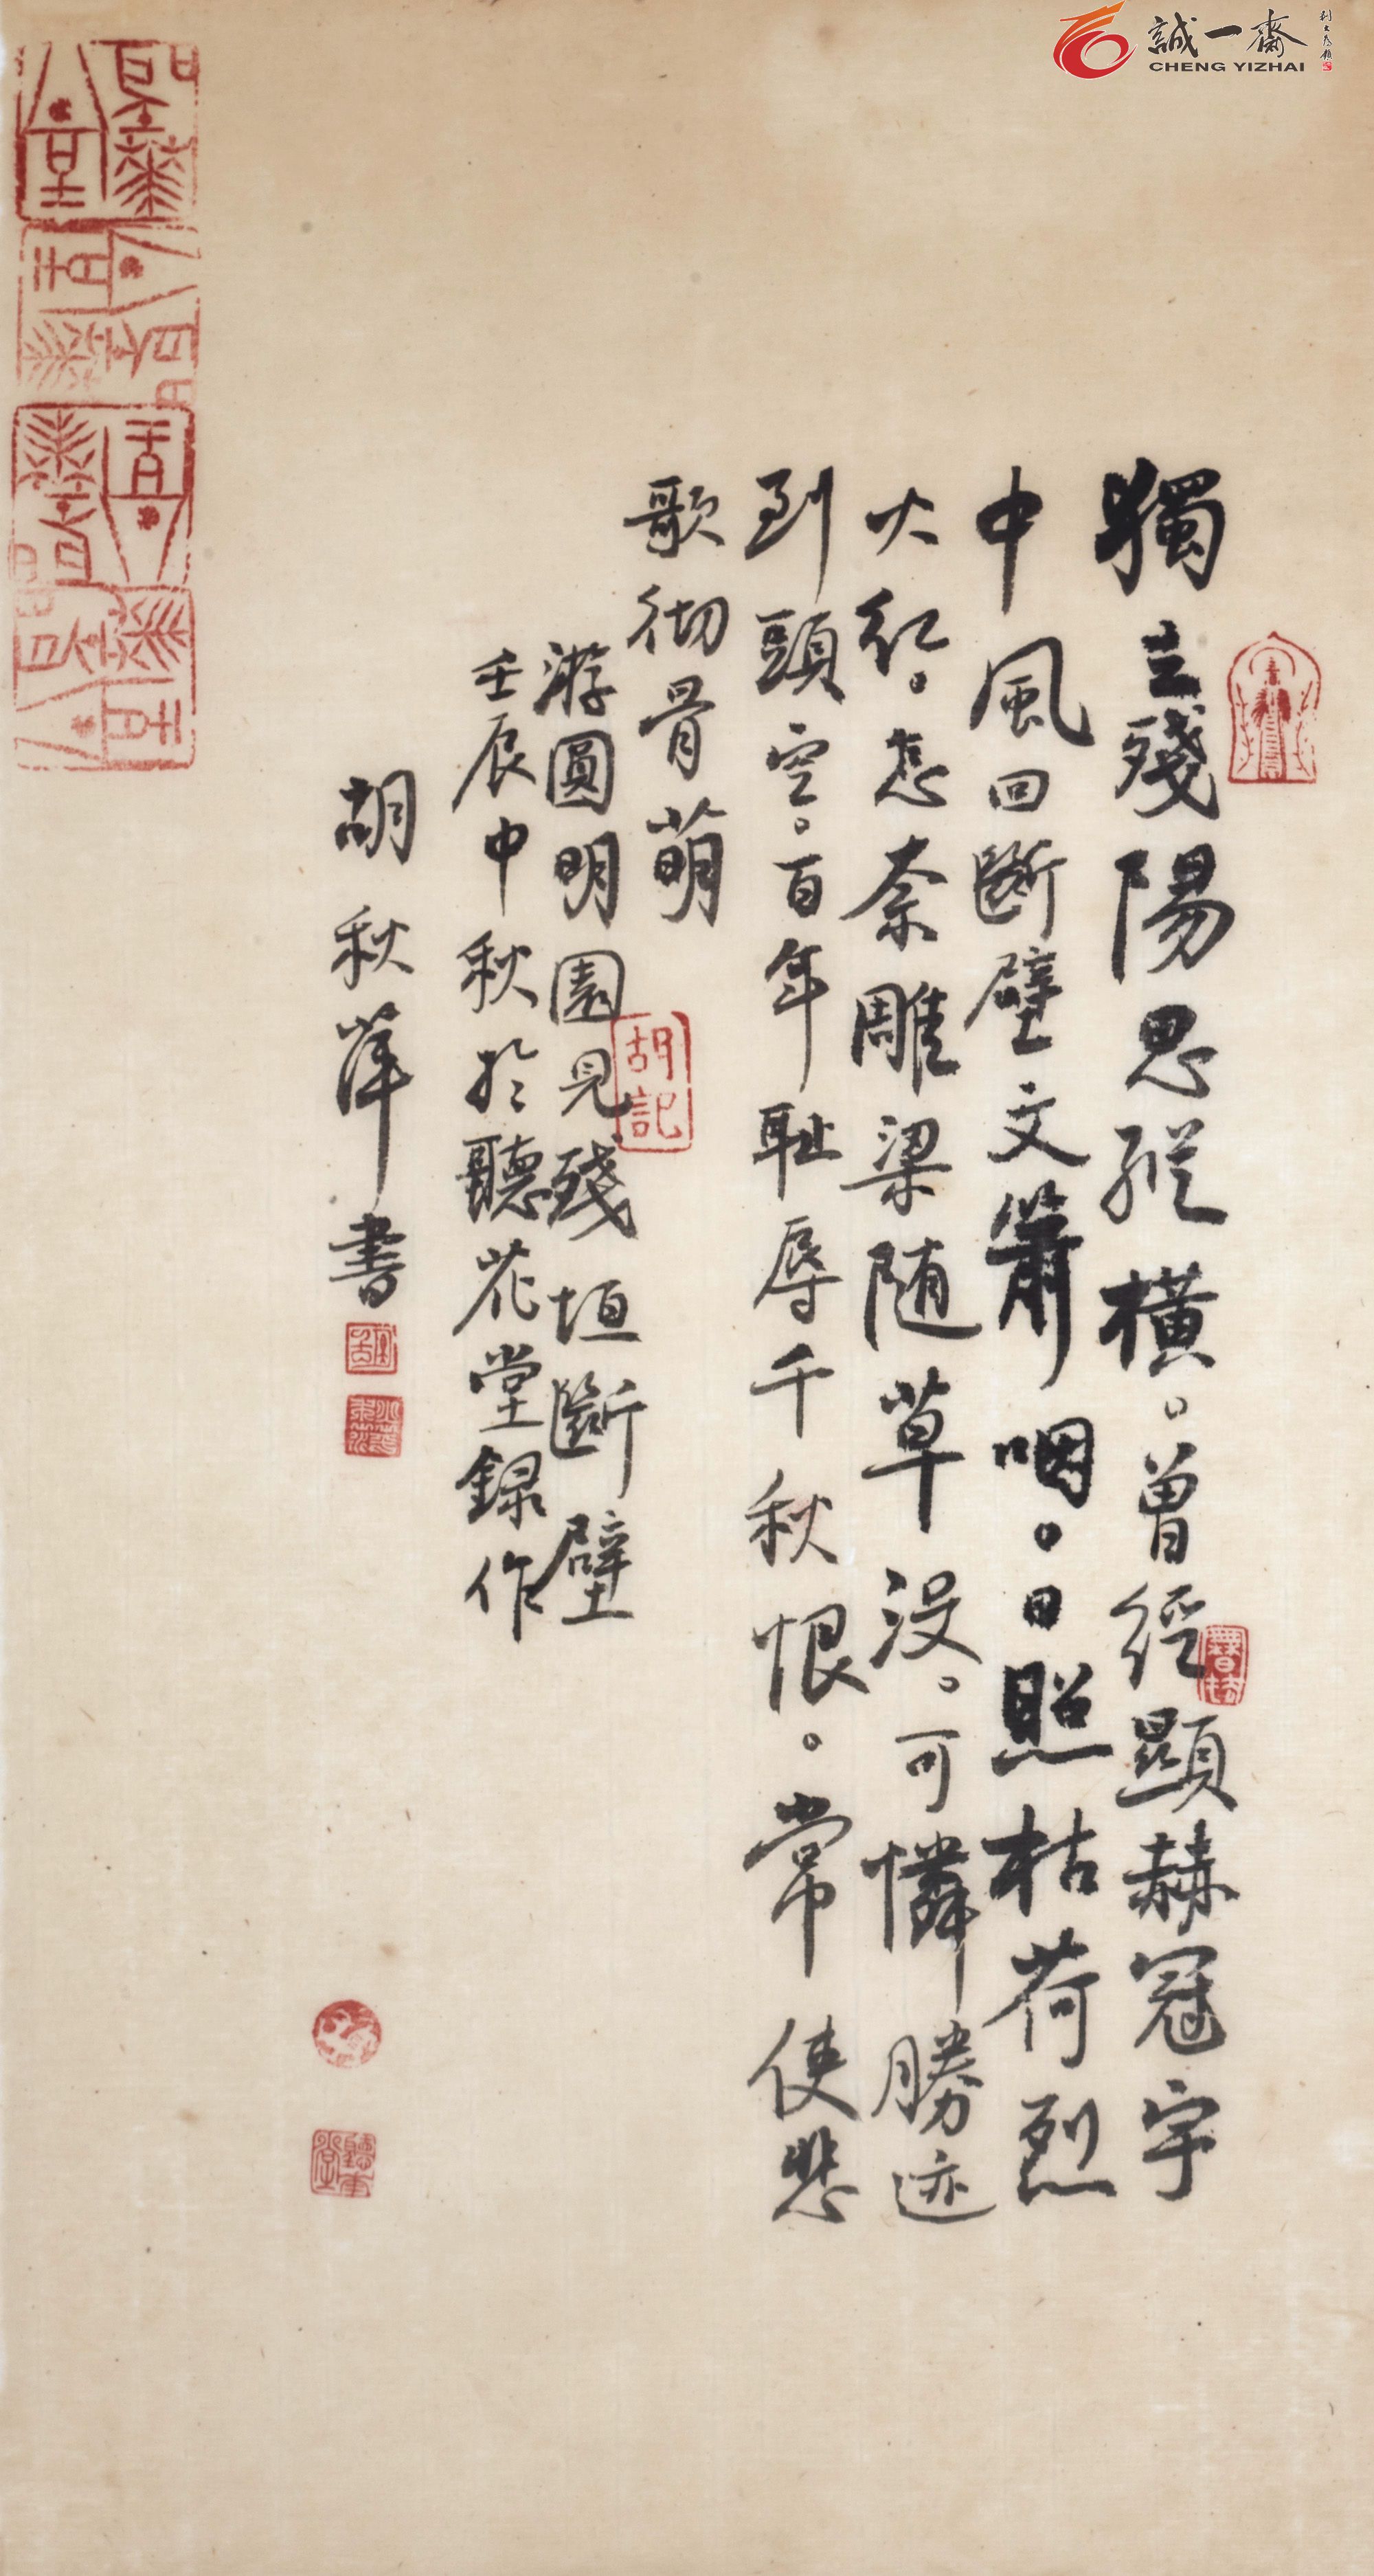 誠一齋
CHENG YIZHAI
獨立殘陽思縱橫。曾經顯赫冠宇
中風回斷壁文簫咽。日照枯荷烈
火紅。怎奈雕梁随草没。可憐勝迹
到頭空。百年耻辱千秋恨。常使悲
歌彻骨萌
游圓明園見殘垣斷壁
壬辰中秋於聽花堂録作
胡秋萍書
胡記